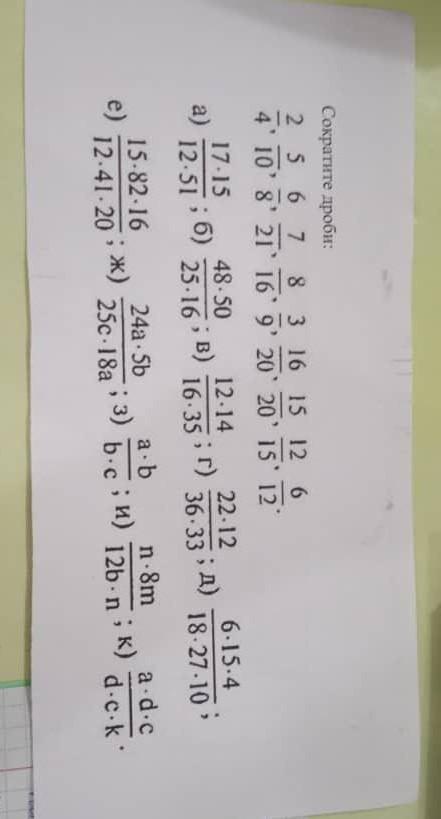 Сократите дроби:
2/4, 5/10, 6/8, 7/21, 8/16, 3/9, 16/20, 15/20, 12/15, 6/12.
а) 17·15/12·51; б) 48·50/25·16; в) 12·14/16·35; г) 22·12/36·33; д) 6·15·4/18·27·10;
е) 15·82·16/12·41·20; ж) 24a·5b/25c·18a; з) a·b/b·c; и) n·8m/12b·n; к) a·d·c/d·c·k.